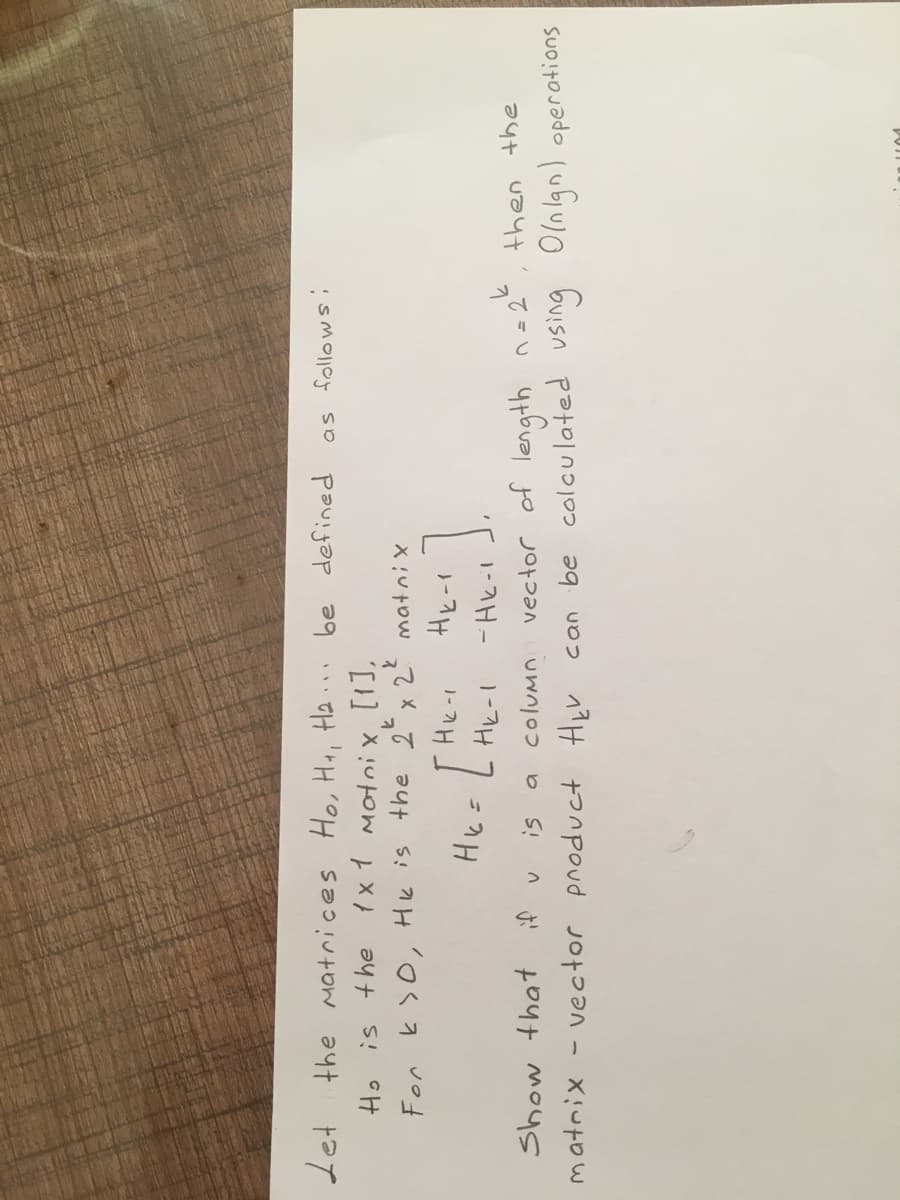 Let the matrices H0, H1, H2... be defined as follows:
H0 is the 1x1 matrix [1],
For k>0, Hk is the 2^k x 2^k matrix
Hk = [ Hk-1 Hk-1
Hk-1 -Hk-1 ].
Show that if v is a column vector of length n=2^k, then the
matrix-vector product Hkv can be calculated using O(nlgn) operations